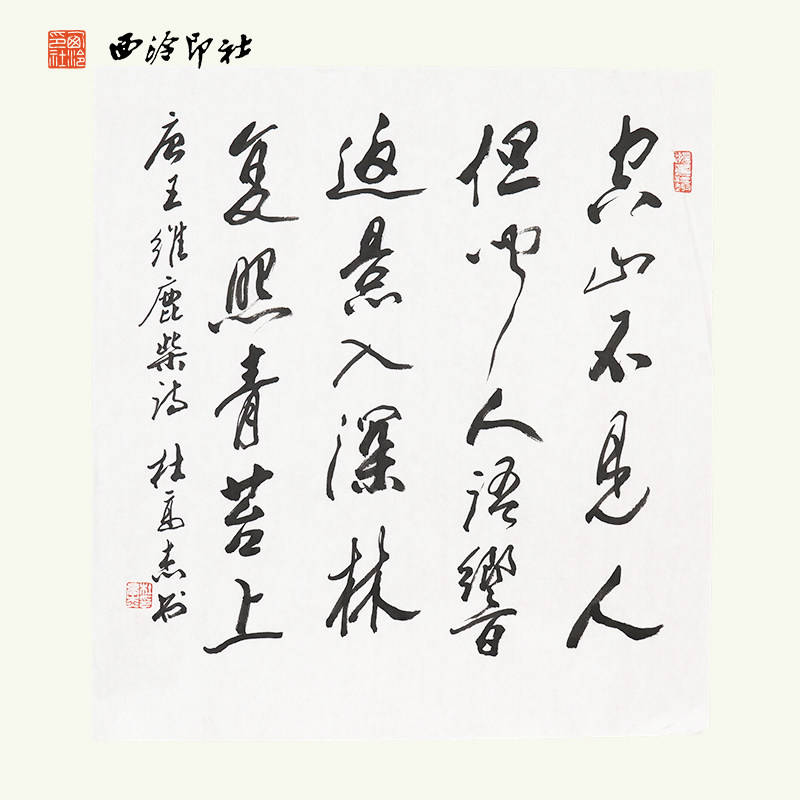 西泠印社
空山不見人
但聞人語響
返景入深林
复照青苔上
唐王維鹿柴詩 杜高杰书